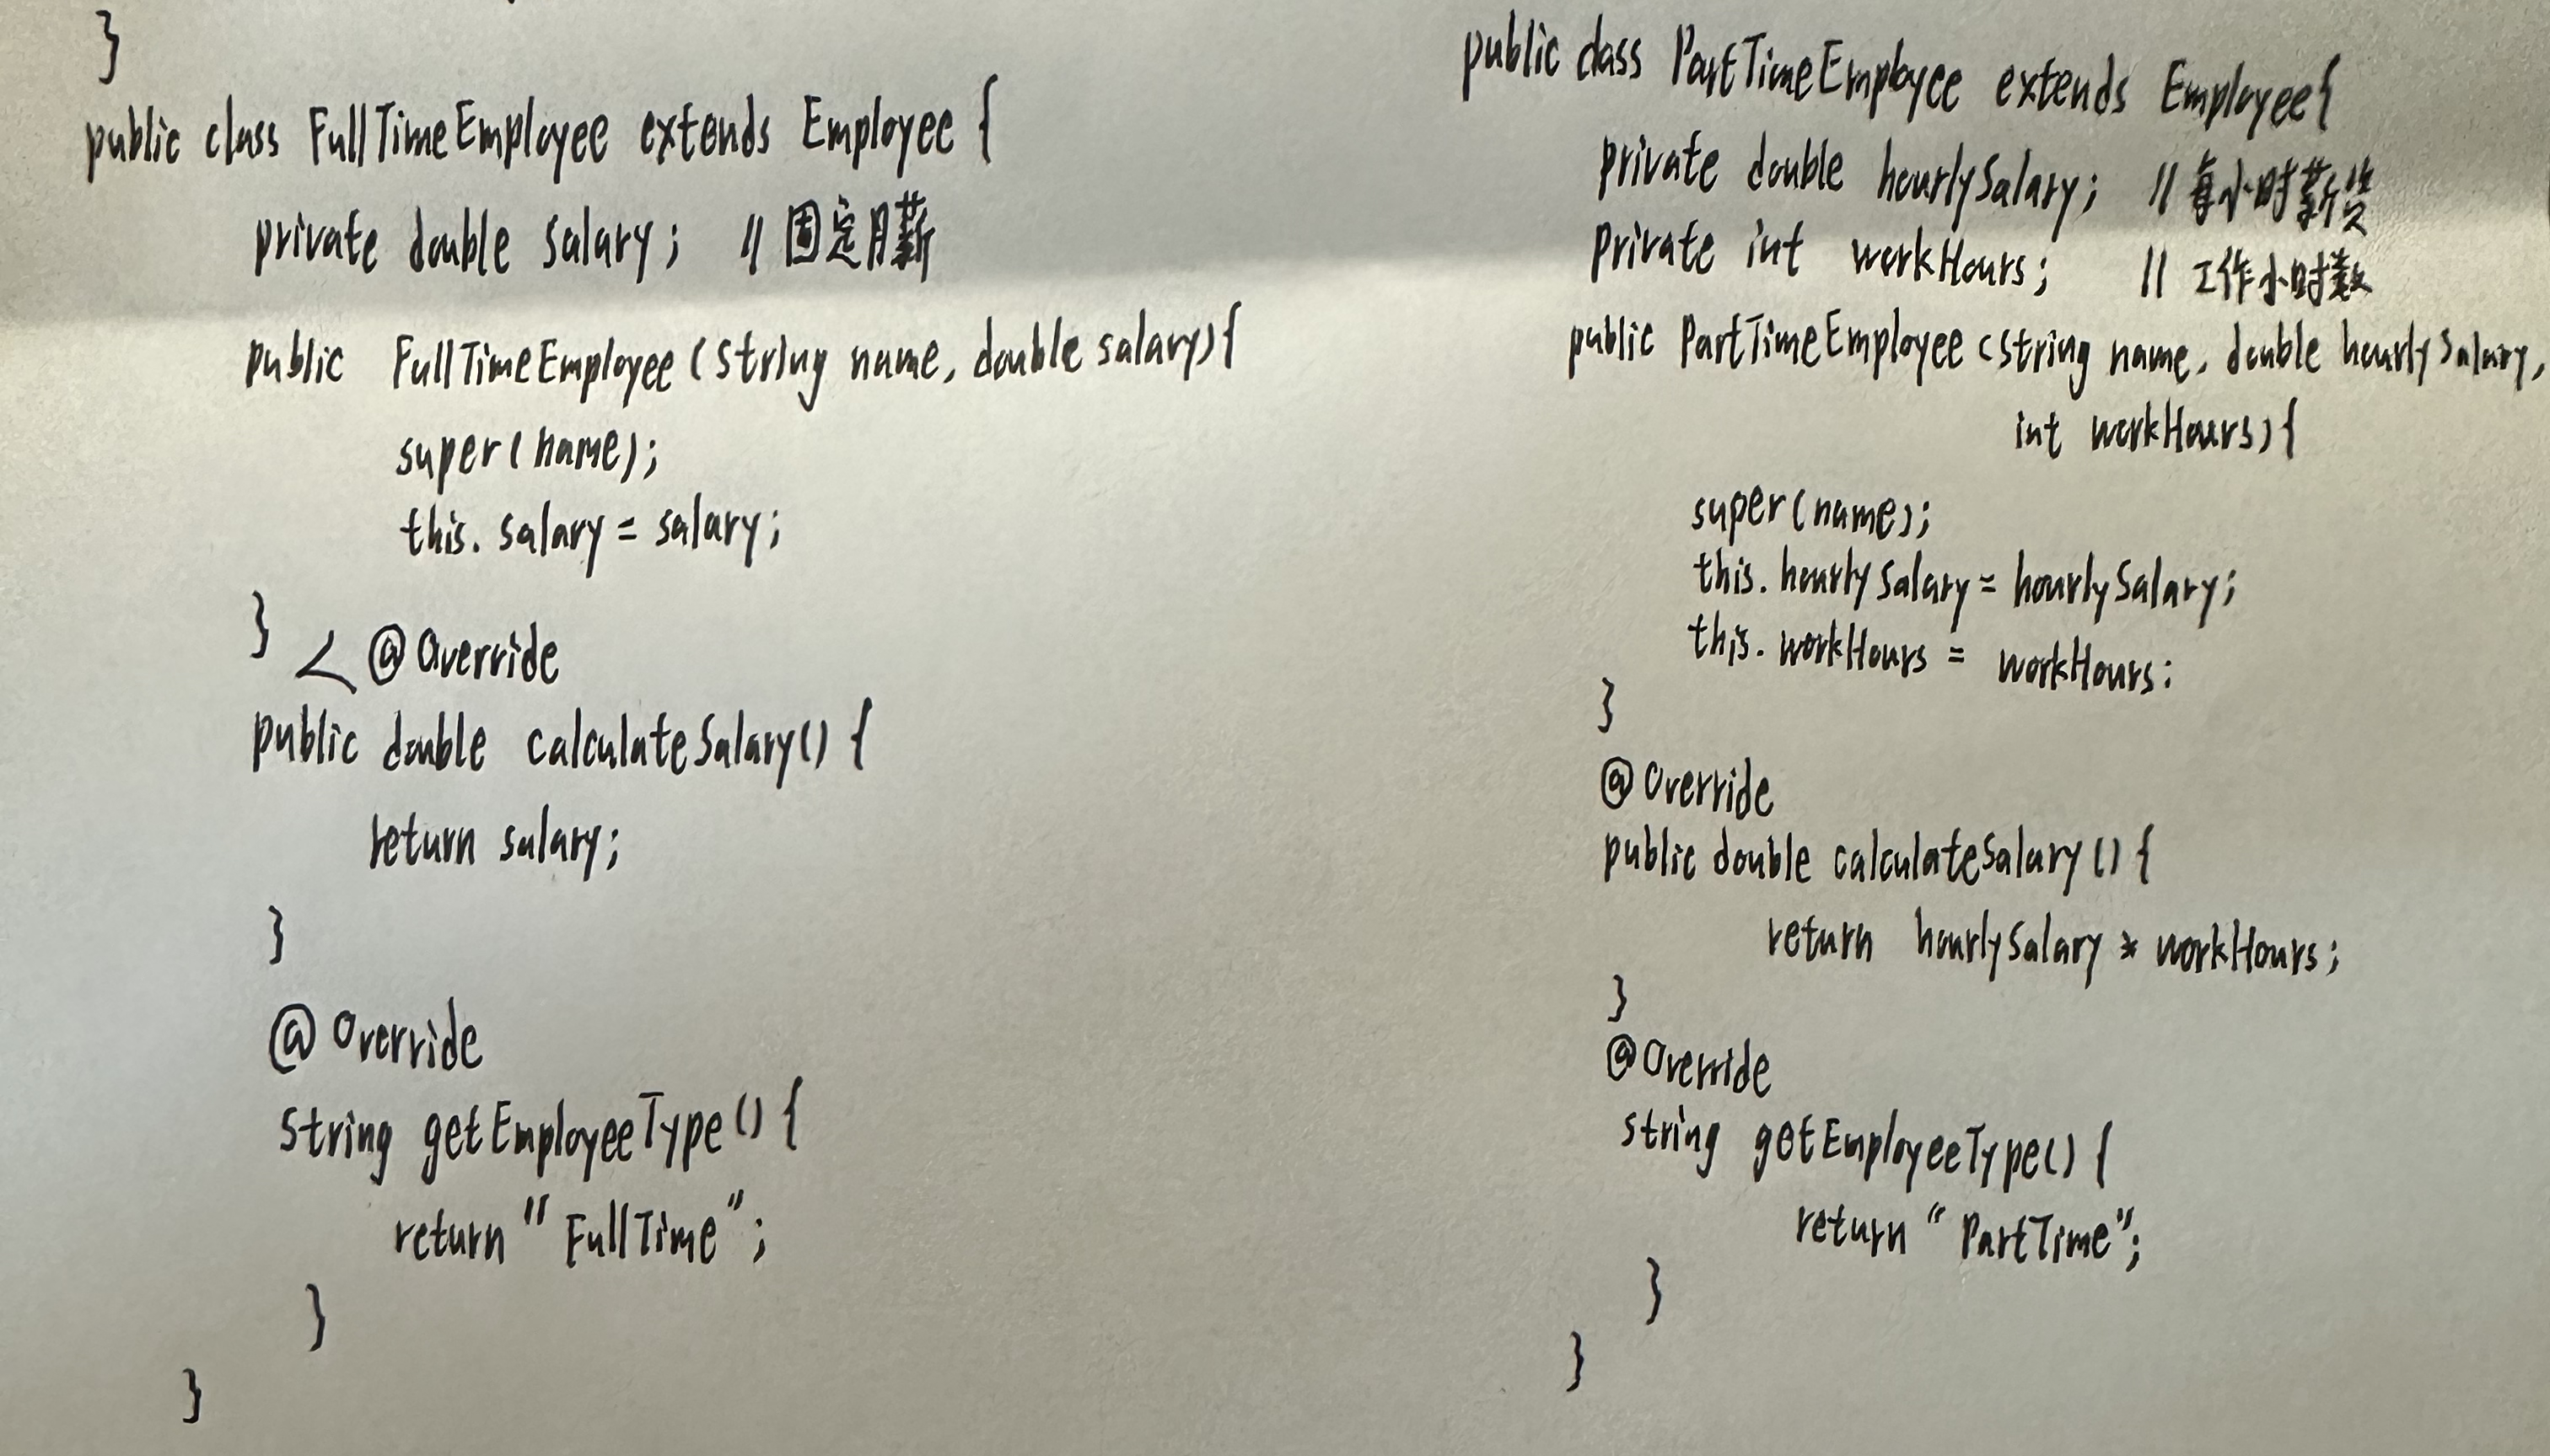 }
public class FullTimeEmployee extends Employee {
private double salary; // 固定月薪
public FullTimeEmployee (String name, double salary){
super(name);
this.salary = salary;
}
< @Override
public double calculateSalary() {
return salary;
}
@Override
String getEmployeeType() {
return "FullTime";
}
}
public class PartTimeEmployee extends Employee{
private double hourlySalary; // 每小时薪资
private int workHours; // 工作小时数
public PartTimeEmployee (String name, double hourlySalary,
int workHours){
super(name);
this.hourlySalary = hourlySalary;
this.workHours = workHours;
}
@Override
public double calculateSalary() {
return hourlySalary * workHours;
}
@Override
String getEmployeeType() {
return "PartTime";
}
}